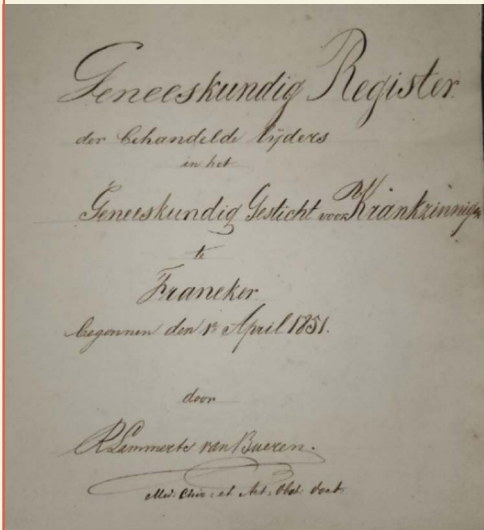 Geneeskundig Register
der behandelde lijders
in het
Geneeskundig Gesticht voor Krankzinnigen
te
Franeker
begonnen den 1e April 1851.
door
R Lammerts van Bueren.
Med: Chir: et Art: Obst: doct